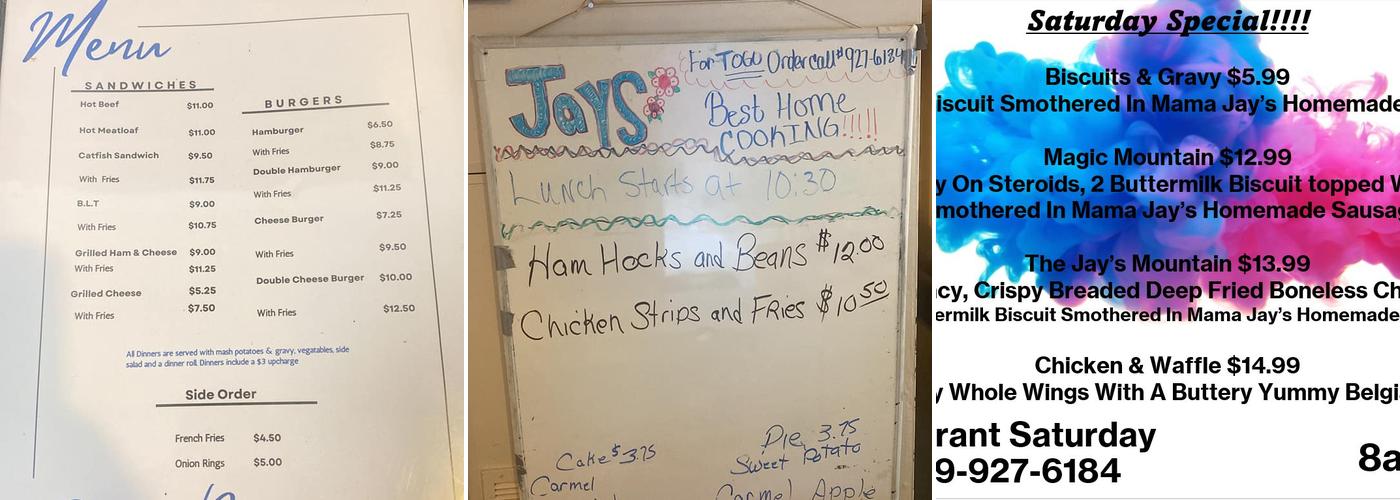 Menu
SANDWICHES
Hot Beef $11.00
Hot Meatloaf $11.00
Catfish Sandwich $9.50
With Fries $11.75
B.L.T $9.00
With Fries $10.75
Grilled Ham & Cheese $9.00
With Fries $11.25
Grilled Cheese $5.25
With Fries $7.50
BURGERS
Hamburger $6.50
With Fries $8.75
Double Hamburger $9.00
With Fries $11.25
Cheese Burger $7.25
With Fries $9.50
Double Cheese Burger $10.00
With Fries $12.50
All Dinners are served with mash potatoes & gravy, vegatables, side
salad and a dinner roll. Dinners include a $3 upcharge
Side Order
French Fries $4.50
Onion Rings $5.00
Jays
For TOGO Order call# 927-6184
Best Home
COOKING!!!!!
Lunch Starts at 10:30
Ham Hocks and Beans $12.00
Chicken Strips and Fries $10.50
Cake $3.75
Carmel
Pie 3.75
Sweet Potato
Carmel Apple
Saturday Special!!!!
Biscuits & Gravy $5.99
iscuit Smothered In Mama Jay's Homemade
Magic Mountain $12.99
y On Steroids, 2 Buttermilk Biscuit topped W
mothered In Mama Jay's Homemade Sausa
The Jay's Mountain $13.99
cy, Crispy Breaded Deep Fried Boneless Ch
ermilk Biscuit Smothered In Mama Jay's Homemade
Chicken & Waffle $14.99
y Whole Wings With A Buttery Yummy Belgi
rant Saturday
9-927-6184
8a